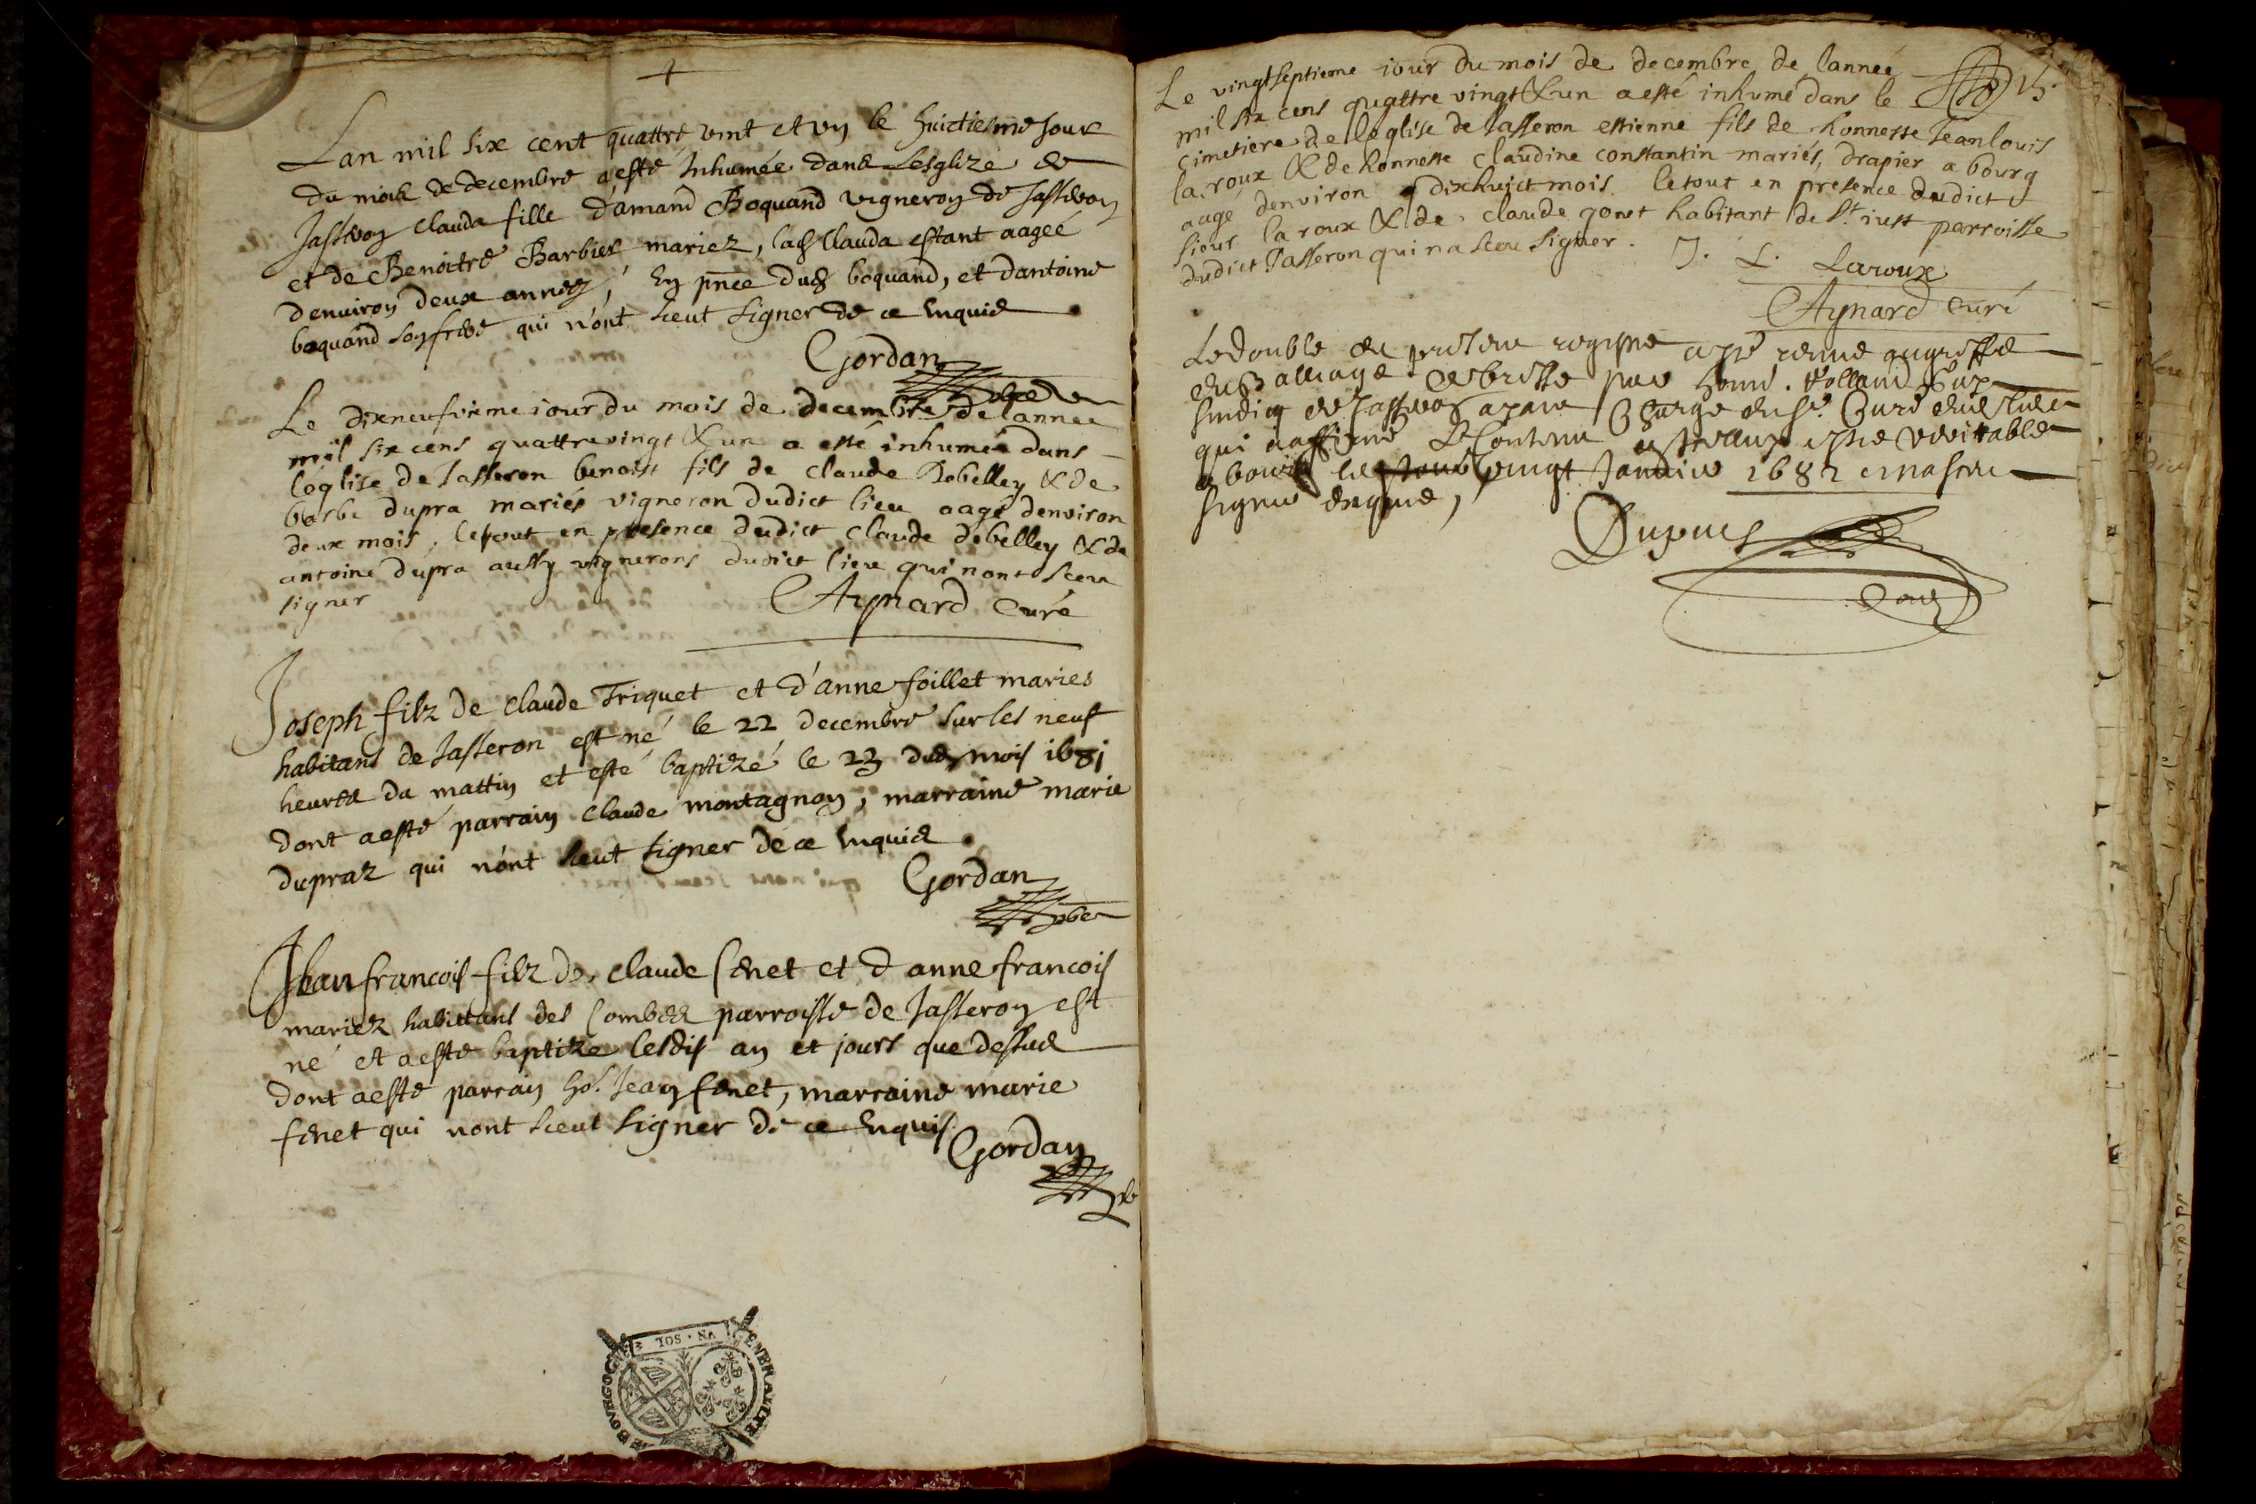 Lan mil six cent quattre vint et un le huictiesme jour
du mois de decembre a esté Inhumée dans Lesglize de
Jasseron Clauda fille d'amand Boquand vigneron de Jasseron
et de Benoitre Barbier mariez, lad Clauda estant aageé
denviron deux années, En pnce dud boquand, et dantoine
boquand son frere qui n'ont sceut signer de ce enquis
Gordan
Le dixneufvieme iour du mois de decembre de lannee
mil six cens quattrevingt & un a esté inhumé dans
léglise de Jasseron benoist fils de claude Debelley & de
barbe dupra mariés vigneron dudict lieu aagé denviron
deux mois, le tout en presence dudict Claude debelley & de
antoine dupra aussy vignerons dudict lieu qui n ont sceu
signer
Aynard Curé
Joseph filz de claude Triquet et d'anne foillet mariés
habitans de Jasseron est né le 22 decembre sur les neuf
heures du mattin et esté baptizé le 23 dud mois 1681
dont a esté parrain Claude montagnon, marraine marie
dupraz qui n'ont sceut signer de ce enquis
Gordan
Jean francois filz de claude Cenet et d anne francois
mariez habittans des Combes parroisse de Jasseron est
né et a esté baptize lesdis an et jours que dessus
dont a esté parrain ho. Jean Cenet, marraine marie
Cenet qui nont sceut signer de ce enquis
Gordan
VN · SOL
DE BOVRGOGNE GENERALITE
Le vingtseptieme iour du mois de decembre de lannee
mil six cens quattre vingt & un a esté inhumé dans le
cimetiere de leglise de Jasseron estienne fils de honneste Jean louis
la roux & de honneste claudine constantin mariés, drapier a bourg
aagé denviron dixhuict mois. le tout en presence dudict
sieur la roux & de claude gonet habitant de St iust parroisse
dudict Jasseron qui na sceu signer. J. L. Laroux
Aynard curé
Le double du present registre a esté remis au greffe
du Balliage de bresse par honn.
sindicq de Jasseron ayant Charge du Sr. Curé dud lieu
qui a affirmé Le Contenu estre veritable
a bourg le vingt Janvier 1682 et na sceu
signer enquis,
Dupuis